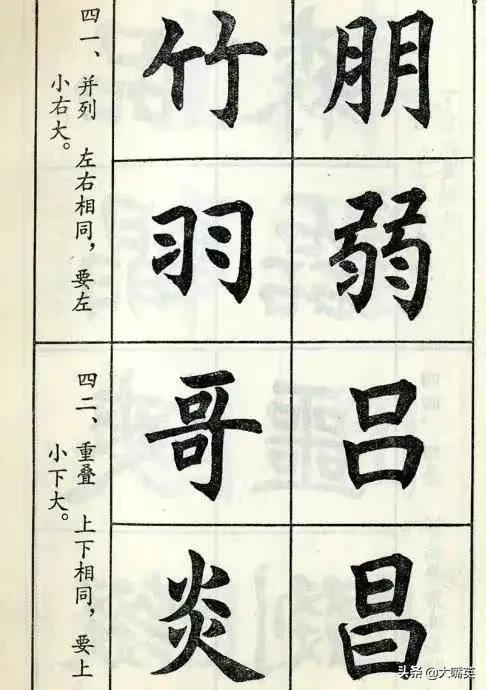 四一、并列　左右相同，要左
小右大。
朋竹
弱羽
四二、重叠　上下相同，要上
小下大。
吕哥
昌炎
头条 @大嘴英